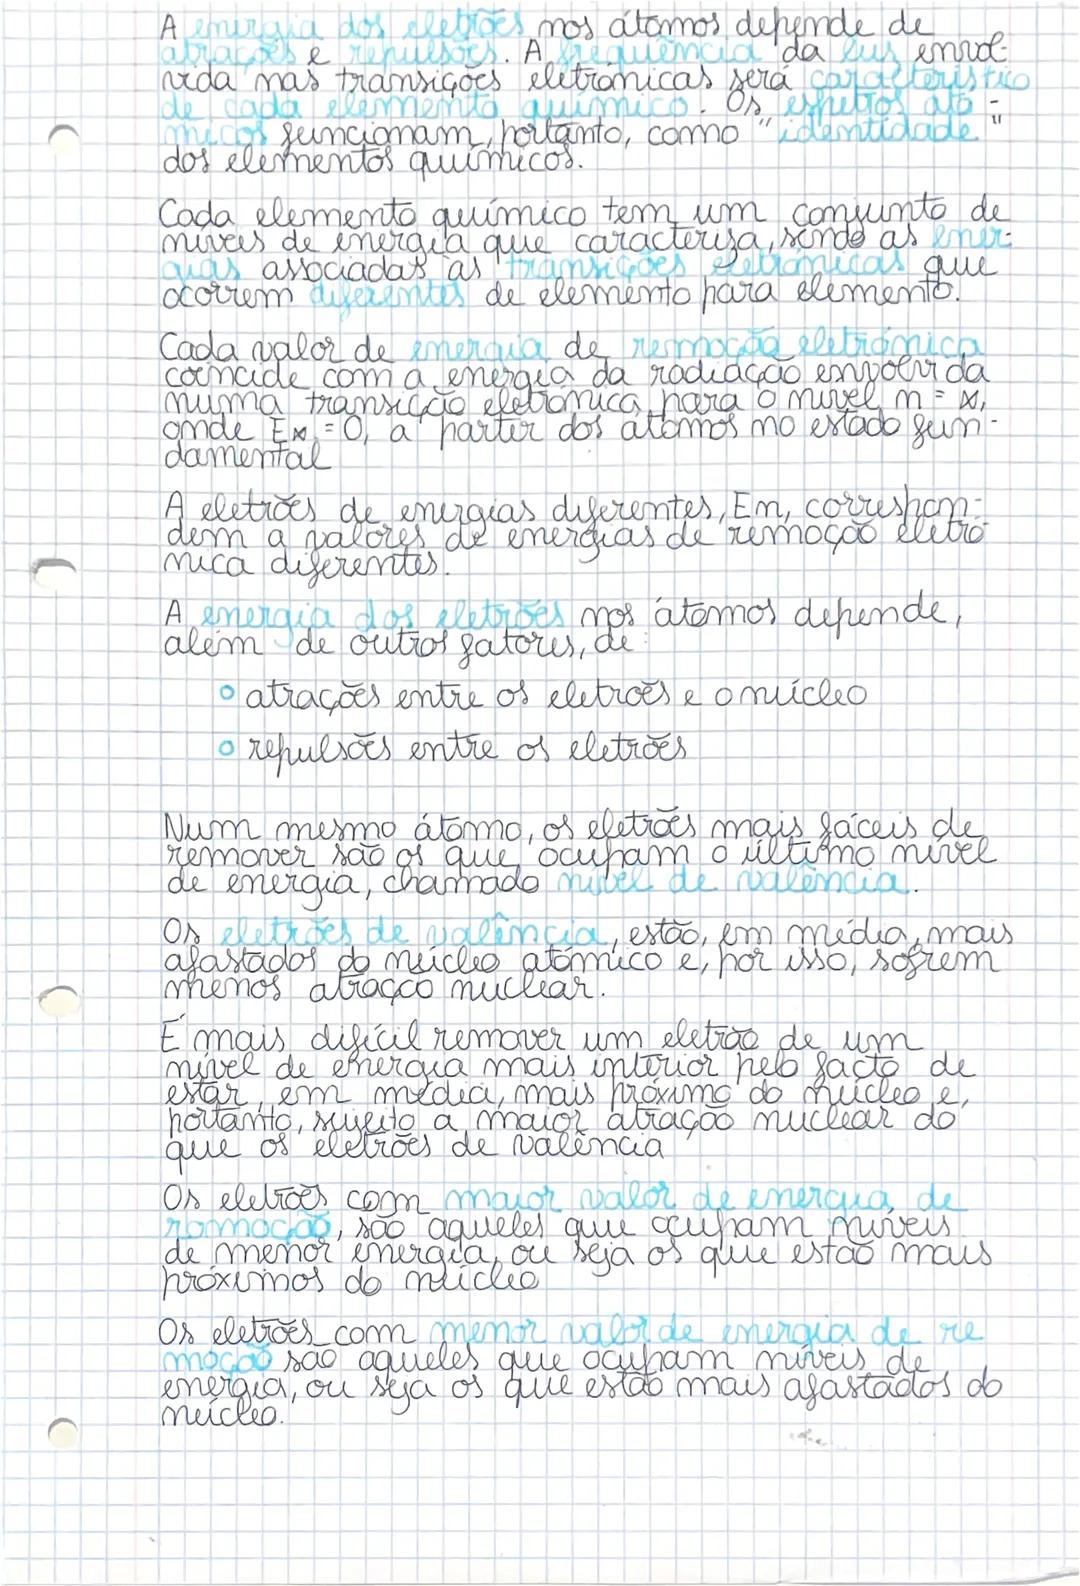 A energia dos eletrões nos átomos depende de
atrações e repulsões. A frequência da luz envol-
vida nas transições eletrónicas será característico
de cada elemento químico. Os espetros ató-
micos funcionam, portanto, como "identidade"
dos elementos químicos.
Cada elemento químico tem um conjunto de
níveis de energia que caracteriza, sendo as ener-
gias associadas às transições eletrónicas que
ocorrem diferentes de elemento para elemento.
Cada valor de energia de remoção eletrónica
coincide com a energia da radiação envolvida
numa transição eletrónica para o nível n = ∞,
onde E∞ = 0, a partir dos átomos no estado fun-
damental
A eletrões de energias diferentes, En, correspon-
dem a valores de energias de remoção eletró
nica diferentes.
A energia dos eletrões nos átomos depende,
além de outros fatores, de:
o atrações entre os eletrões e o núcleo
o repulsões entre os eletrões
Num mesmo átomo, os eletrões mais fáceis de
remover são os que ocupam o último nível
de energia, chamado nível de valência.
Os eletrões de valência, estão, em média, mais
afastados do núcleo atómico e, por isso, sofrem
menos atração nuclear.
É mais difícil remover um eletrão de um
nível de energia mais interior pelo facto de
estar, em média, mais próximo do núcleo e,
portanto, sujeito a maior atração nuclear do
que os eletrões de valência
Os eletrões com maior valor de energia de
remoção, são aqueles que ocupam níveis
de menor energia, ou seja os que estão mais
próximos do núcleo
Os eletrões com menor valor de energia de re
moção são aqueles que ocupam níveis de
energia, ou seja os que estão mais afastados do
núcleo.